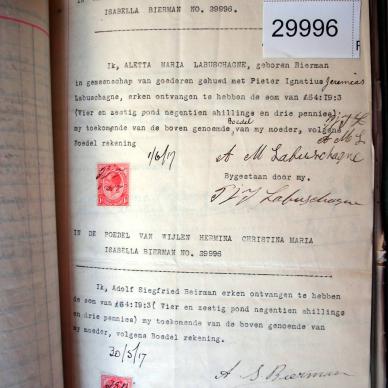 ISABELLA BIERMAN NO. 29996.
29996
Ik, ALETTA MARIA LABUSCHAGNE, geboren Bierman
in gemeenschap van goederen gehuwd met Pieter Ignatius Jeremias
Labuschagne, erken ontvangten te hebben de som van £64:19:3
(Vier en zestig pond negentien shillings en drie pennies)
P.I.J L
my toekomende van de boven genoemde Boedel van my moeder, volgens
A M L
Boedel rekening
1/6/17
A M Labuschagne
Bygestaan door my.
P I J Labuschagne
IN DE BOEDEL VAN WIJLEN HERMINA CHRISTINA MARIA
ISABELLA BIERMAN NO. 29996
Ik, Adolf Siegfried Beirman erken ontvangten te hebben
de som van £64:19:3( Vier en zestig pond negentien shillings
en drie pennies) my toekomende van de boven genoemde van
my moeder, volgens Boedel rekening.
30/5/17
A S Bierman